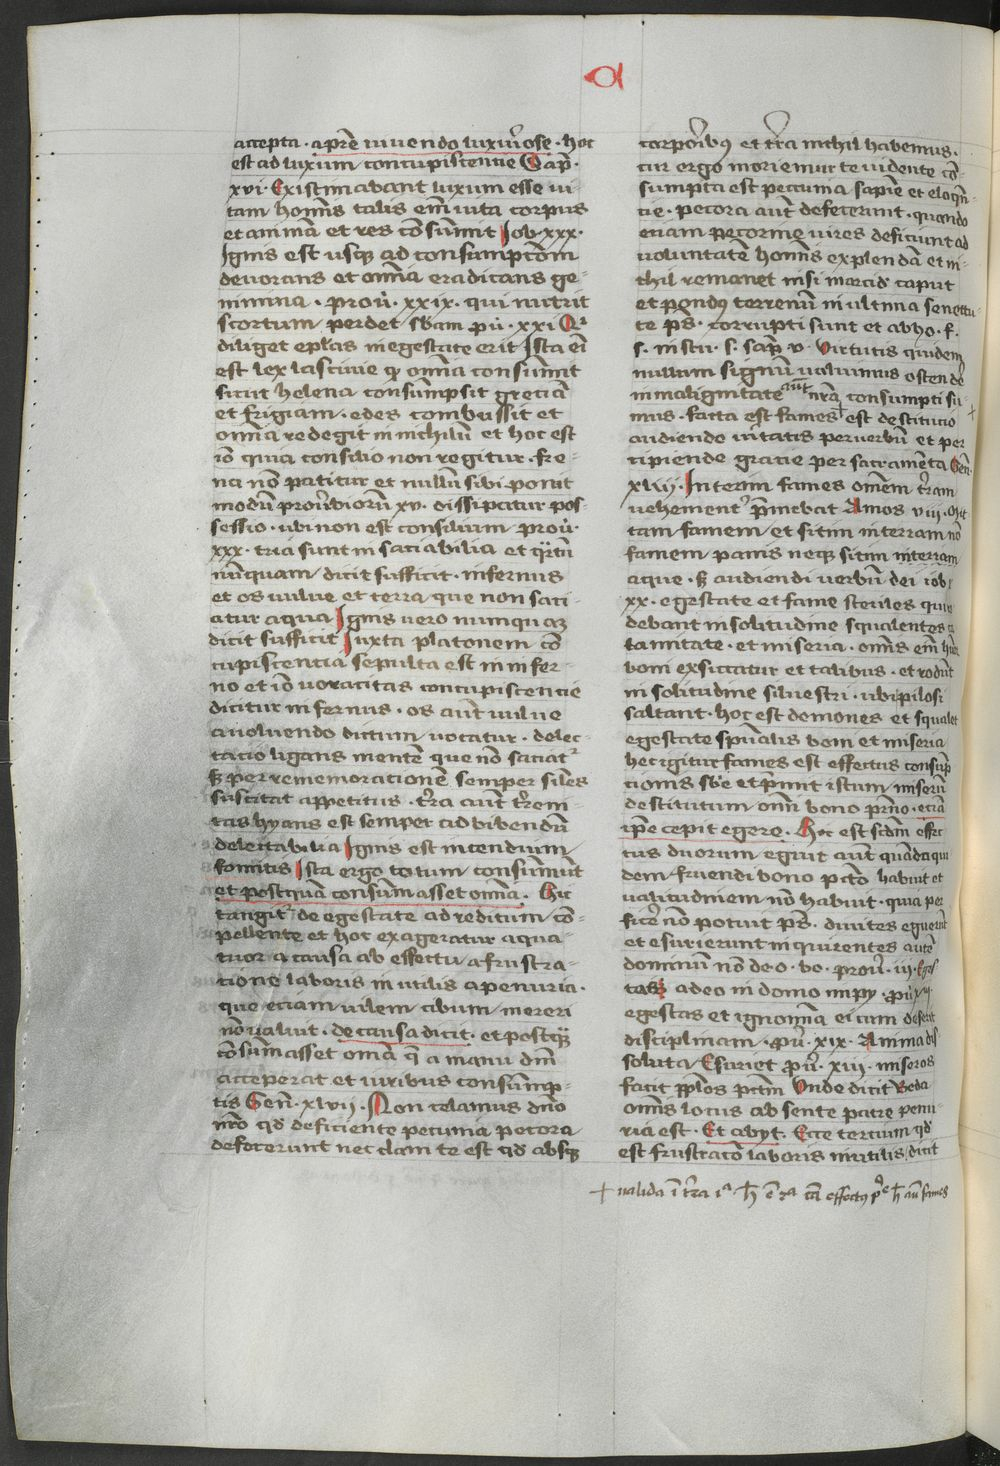 a
accepta . a pr̄e viuendo luxuriose . hoc
est ad luxum concupiscencie Sap̄ .
xvi . Existimabant luxum esse ui-
tam hom̄is talis em̄ uita corpus
et animā et res cōsummit Job . xxx .
Ignis est usq; ad consumpcōm
deuorans et om̄ia eradicans ge-
nimina . prou̓ . xxix . qui nutrit
scortum perdet sb̄am pu̓ . xxi Qi
diligit epl̄as in egestate erit Ista ei̅
est lex lasciuie qꝫ om̄ia consummit
sicut helena consumpsit greciā
et frigiam . edes combussit et
om̄ia redegit in nichilū et hoc est
iō quia consilio non regitur . fre-
na nō patitur et nullū sibi ponit
modū prouu̓biorū xv . dissipatur pos-
sessio . ubi non est consilium prou̓ .
xxx . tria sunt in saciabilia et qr̄tū
nūquam dicit sufficit . infernus
et os uulue et terra que non saci-
atur aqua Ignis vero nunquaꝫ
dicit sufficit Iuxta platonem cō
cupiscencia sepulta est in infer-
no et iō voracitas concupiscencie
dicitur infernus . os aut̄ uulue
a uoluendo dictum uocatur . delec-
tacio ligans mentē que nō saciat2
sꝫ per rememoracionē semper siles
suscitat appetitus . tr̄ra aut̄ tr̄reni-
tas hyans est semper ad bibendū
delectabilia Ignis est incendium
fomitis Ista ergo totum consumūt
et postquā consummasset om̄ia . Hic
tangit2 de egestate ad reditum cō-
pellente et hoc exageratur a qua-
tuor a causa ab effectu a frustra-
cione laboris in utilis a penuria .
que eciam uilem cibum mereri
nō ualuit . de causa dicit . et postqꝫ
cōsum̄asset om̄ia q̄ a manu dn̄i
acceperat et viribus consūmp-
tis Gen̄ . xlvij . Non celamus dn̄o
nr̄o qd̓ deficiente pecunia pecora
defecerunt nec clam te est qd̓ absq;
corpor̄ibꝰ et tr̄ra nichil habemus .
cur ergo moriemur te vidente cō-
sumpta est peccunia sapie̅ et eloqn̄-
cie . pecora aut̄ defecerunt . quando
eciam pecorine uires deficiunt ad
voluntatē hom̄is explendā et ni-
chil remanet nisi marcidꝰ caput
et pondꝰ terrenū in ultima senectu-
te ps̄ . corrupti sunt et abho . f .
s . in stu . s . sap̄ v . Virtutis quidem
nullum signū ualuimus ostende̓
in malignitate aut̄ nr̄a consumpti su-
mus . facta est fames + est destitucio
audiendo uitatis per verbū et per
cipiende gracie per sacramēta Gen̄ .
xliij . Interim fames om̄em tr̄ram
vehement̓ p̄mebat Amos viij . Mit
tam famem et sitim in terram nō
famem panis neq; sitim in terram
aque . sꝫ audiendi uerbū dei iob
xx . egestate et fame steriles qui
debant in solitudine squalentes
lamitate . et miseria . om̄is em̄
boni exsiccatur et talibus . et rodūt
in solitudine siluestri . ubi pilosi
saltant . hoc est demones et squalet
egestate spūalis boni et miseria
hec igitur fames est effectus consūp
cionis sb̄e et p̄mit istum miserū
destitutum om̄i bono pr̄no . ecia
ip̄e cepit egere . Hoc est scdm̄ effec
tus duorum eguit aut̄ quādaqui
dem fruendi bono pcto̅ habuit et
ualitudinem nō habuit . quia per
fice̓ nō potuit ps̄ . diuites eguerūt
et esurierunt inquirentes aute̅
dominū nō de o . bo . prou̓ . iij . Eges
tas a deo in domo impy . pu̓ xiij
egestas et ignom̄ia ei cum deserit
disciplinam . pu̓ . xix . Anima dis-
soluta Esuriet pu̓ . xiij . miseros
facit pplos pctm̄ Unde dicit Beda
om̄is locus ab sente patre penu-
ria est . Et abyt . Ecce tercium qd̓
est frustraco̅ laboris inutilis dicit
+ ualida i̅ tr̄ra ia h̄ e̅ 2a effectus h̄ aut̄ fames